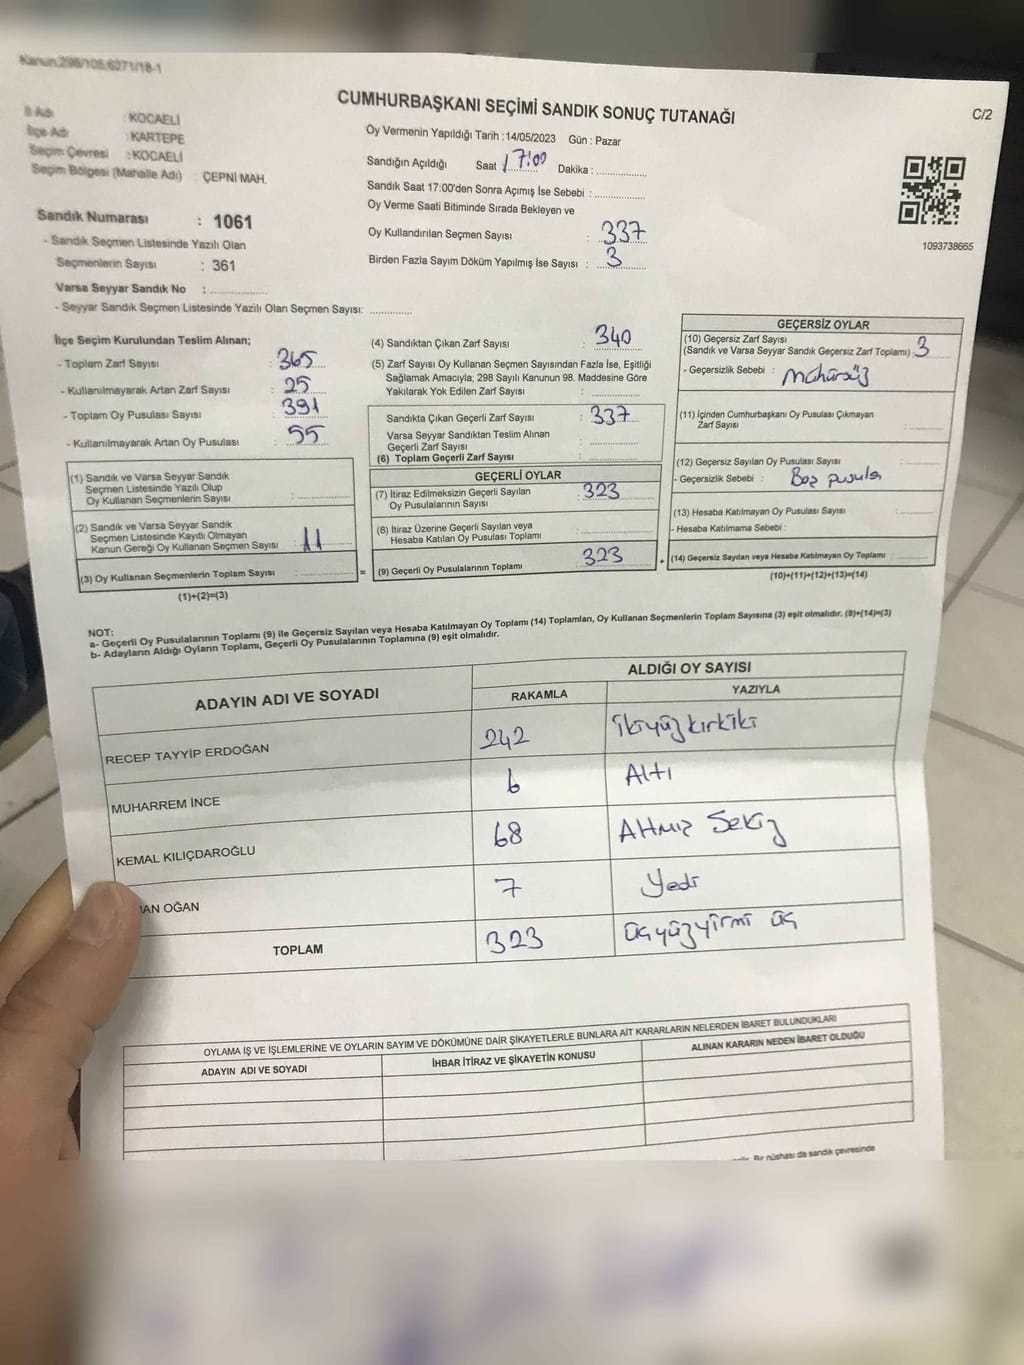 Kanun.298/105,6271/18-1
C/2
CUMHURBAŞKANI SEÇİMİ SANDIK SONUÇ TUTANAĞI
İl Adı : KOCAELİ
İlçe Adı : KARTEPE
Seçim Çevresi : KOCAELİ
Seçim Bölgesi (Mahalle Adı) : ÇEPNİ MAH.
Sandık Numarası : 1061
- Sandık Seçmen Listesinde Yazılı Olan
Seçmenlerin Sayısı : 361
Varsa Seyyar Sandık No :
- Seyyar Sandık Seçmen Listesinde Yazılı Olan Seçmen Sayısı:
Oy Vermenin Yapıldığı Tarih : 14/05/2023 Gün : Pazar
Sandığın Açıldığı Saat 17:00 Dakika :
Sandık Saat 17:00'den Sonra Açımış İse Sebebi :
Oy Verme Saati Bitiminde Sırada Bekleyen ve
Oy Kullandırılan Seçmen Sayısı : 337
Birden Fazla Sayım Döküm Yapılmış İse Sayısı : 3
1093738665
İlçe Seçim Kurulundan Teslim Alınan;
- Toplam Zarf Sayısı : 365
- Kullanılmayarak Artan Zarf Sayısı : 25
- Toplam Oy Pusulası Sayısı : 391
- Kullanılmayarak Artan Oy Pusulası : 55
(1) Sandık ve Varsa Seyyar Sandık
Seçmen Listesinde Yazılı Olup
Oy Kullanan Seçmenlerin Sayısı :
(2) Sandık ve Varsa Seyyar Sandık
Seçmen Listesinde Kayıtlı Olmayan
Kanun Gereği Oy Kullanan Seçmen Sayısı : 11
(3) Oy Kullanan Seçmenlerin Toplam Sayısı : =
(1)+(2)=(3)
(4) Sandıktan Çıkan Zarf Sayısı : 340
(5) Zarf Sayısı Oy Kullanan Seçmen Sayısından Fazla İse, Eşitliği
Sağlamak Amacıyla; 298 Sayılı Kanunun 98. Maddesine Göre
Yakılarak Yok Edilen Zarf Sayısı :
Sandıkta Çıkan Geçerli Zarf Sayısı : 337
Varsa Seyyar Sandıktan Teslim Alınan
Geçerli Zarf Sayısı :
(6) Toplam Geçerli Zarf Sayısı :
GEÇERLİ OYLAR
(7) İtiraz Edilmeksizin Geçerli Sayılan
Oy Pusulalarının Sayısı : 323
(8) İtiraz Üzerine Geçerli Sayılan veya
Hesaba Katılan Oy Pusulası Toplamı :
(9) Geçerli Oy Pusulalarının Toplamı : 323 +
GEÇERSİZ OYLAR
(10) Geçersiz Zarf Sayısı
(Sandık ve Varsa Seyyar Sandık Geçersiz Zarf Toplamı) : 3
- Geçersizlik Sebebi : Mühürsüz
(11) İçinden Cumhurbaşkanı Oy Pusulası Çıkmayan
Zarf Sayısı :
(12) Geçersiz Sayılan Oy Pusulası Sayısı :
- Geçersizlik Sebebi : Boş pusula
(13) Hesaba Katılmayan Oy Pusulası Sayısı :
- Hesaba Katılmama Sebebi :
(14) Geçersiz Sayılan veya Hesaba Katılmayan Oy Toplamı :
(10)+(11)+(12)+(13)=(14)
NOT:
a- Geçerli Oy Pusulalarının Toplamı (9) ile Geçersiz Sayılan veya Hesaba Katılmayan Oy Toplamı (14) Toplamları, Oy Kullanan Seçmenlerin Toplam Sayısına (3) eşit olmalıdır. (9)+(14)=(3)
b- Adayların Aldığı Oyların Toplamı, Geçerli Oy Pusulalarının Toplamına (9) eşit olmalıdır.
ADAYIN ADI VE SOYADI
ALDIĞI OY SAYISI
RAKAMLA YAZIYLA
RECEP TAYYİP ERDOĞAN 242 İkiyüzkırkiki
MUHARREM İNCE 6 Altı
KEMAL KILIÇDAROĞLU 68 Altmış Sekiz
AN OĞAN 7 Yedi
TOPLAM 323 üçyüzyirmi üç
OYLAMA İŞ VE İŞLEMLERİNE VE OYLARIN SAYIM VE DÖKÜMÜNE DAİR ŞİKAYETLERLE BUNLARA AİT KARARLARIN NELERDEN İBARET BULUNDUKLARI
ADAYIN ADI VE SOYADI İHBAR İTİRAZ VE ŞİKAYETİN KONUSU ALINAN KARARIN NEDEN İBARET OLDUĞU
Bir nüshası da sandık çevresinde